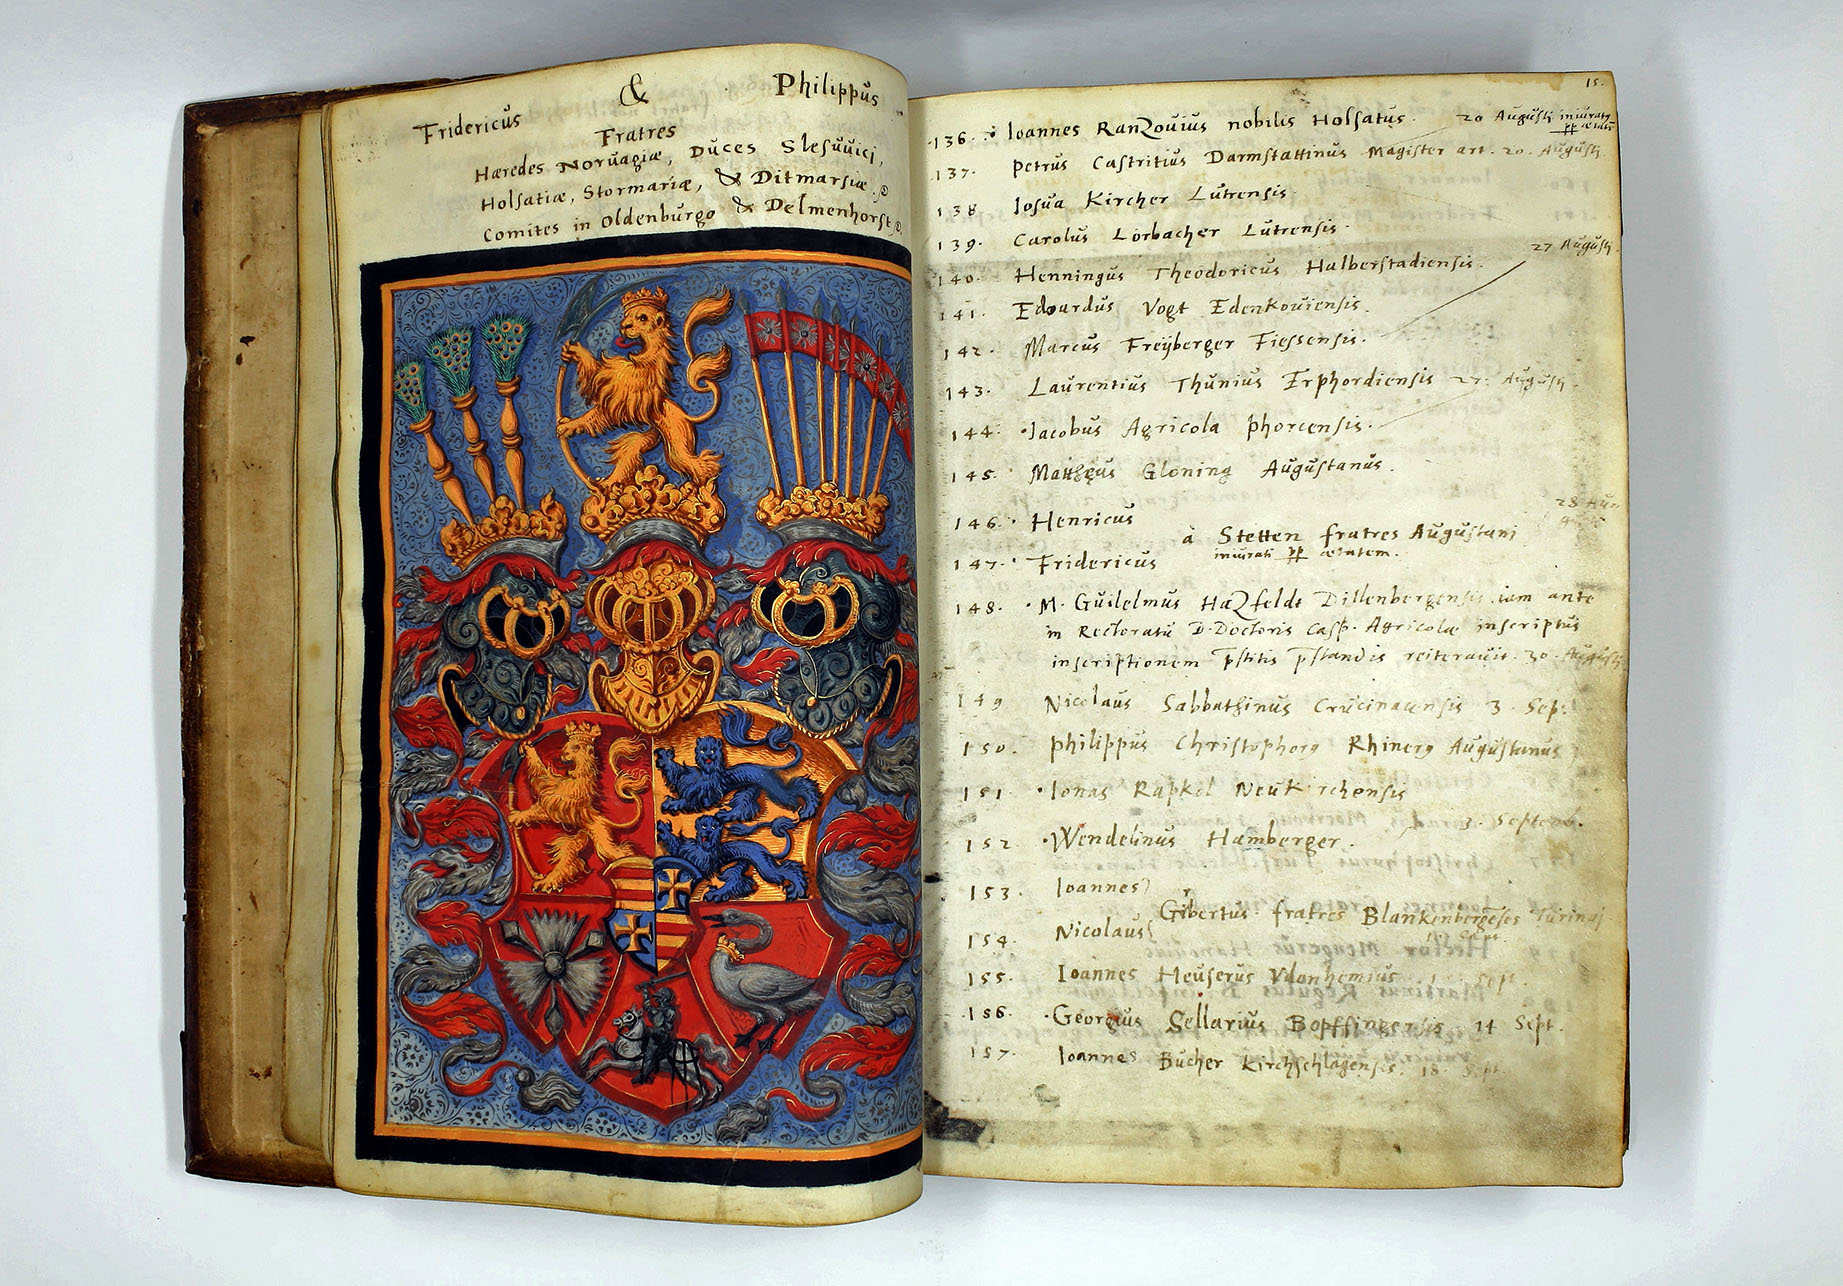 Fridericus & Philippus
Fratres
Hæredes Norvagiæ, Duces Slesuuici,
Holsatiæ, Stormariæ, & Ditmarsiæ.
Comites in Oldenburgo & Delmenhorst
15.
136. Ioannes Ranzouius nobilis Holsatus. 20 Augusti iniurati
137. Petrus Castritius Darmstattinus Magister art. 20. Augusti
138 Iosua Kircher Lutrensis.
139. Carolus Lorbacher Lutrensis.
27 Augusti.
140. Henningus Theodoricus Halberstadiensis.
141. Edouardus Vogt Edenkouiensis.
142. Marcus Freÿberger Fiessensis.
143. Laurentius Thunius Erphordiensis 27. Augusti.
144. Iacobus Agricola phorcensis.
145. Mattheus Gloning Augustanus.
28
146. Henricus
à Stetten fratres Augustani
iniurati ætatem.
147. Fridericus
148. M. Guilelmus Hatzfeldt Dillenbergensis iam ante
in Rectoratu D. Doctoris Casp. Agricolæ inscriptus
inscriptionem p̄stitis p̄standis reiterauit. 30. Augusti
149 Nicolaus Sabbathinus Crucinacensis 3. Sep.
150. philippus Christophorg Rhinerg Augustanus
151. Ionas Rapkel Neukirchensis
3. Septemb.
152. Wendelinus Hamberger.
153. Ioannes
Gibertus fratres Blankenbergēses Turingi
Sept.
154. Nicolaus
155. Ioannes Heuserus Vdenhemius Sept.
156. Georgius Sellarius Bopffingensis 14 Sept.
157. Ioannes Bucher Kirchschlagensis. 18. Sept.